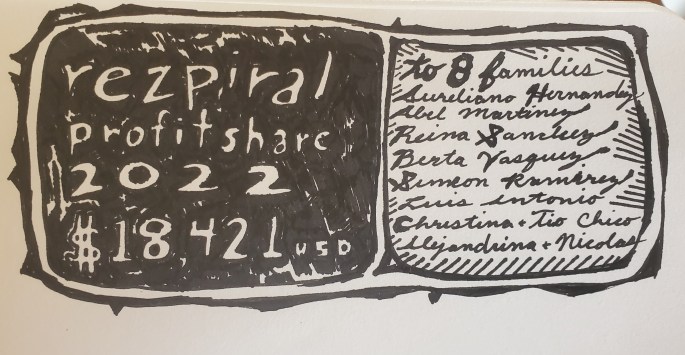 rezpiral
profitshare
2022
$18,421 USD
to 8 families
Aureliano Hernandez
Abel Martinez
Reina Sanchez
Berta Vasquez
Simeon Ramirez
Luis Antonio
Christina + Tio Chico
Alejandrina + Nicolas